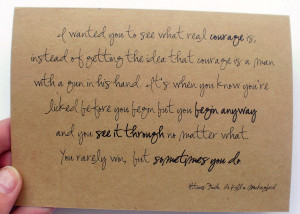 I wanted you to see what real courage is,
instead of getting the idea that courage is a man
with a gun in his hand. It's when you know you're
licked before you begin but you begin anyway
and you see it through no matter what.
You rarely win, but sometimes you do.
Atticus Finch, To Kill a Mockingbird